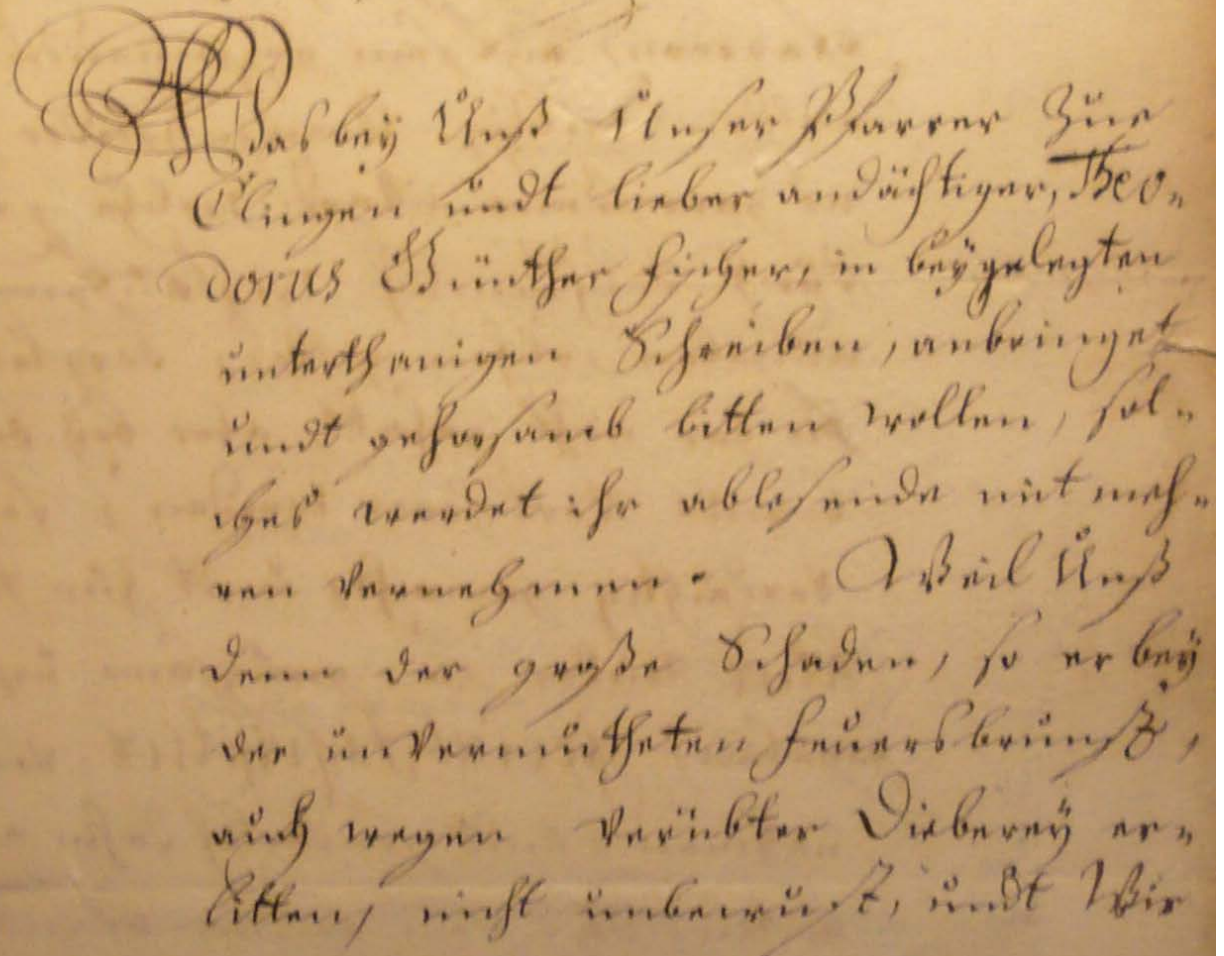 Was bey Unß Unser Pfarrer Zue
Clingen undt lieber andächtiger, Theo-
dorus Günther Fischer, in beygelegten
unterthanigen Schreiben, anbringet
undt gehorsamb bitten wollen, sol-
ches werdet ihr ablesende mit meh-
ren vernehmen. Weil Unß
denn der große Schaden, so er bey
der unvermutheten Feuersbrunst,
auch wegen verübter Dieberey er-
litten, nicht unbewust, undt Wir